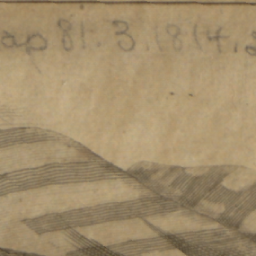 ap 81. 3. 1814. 2